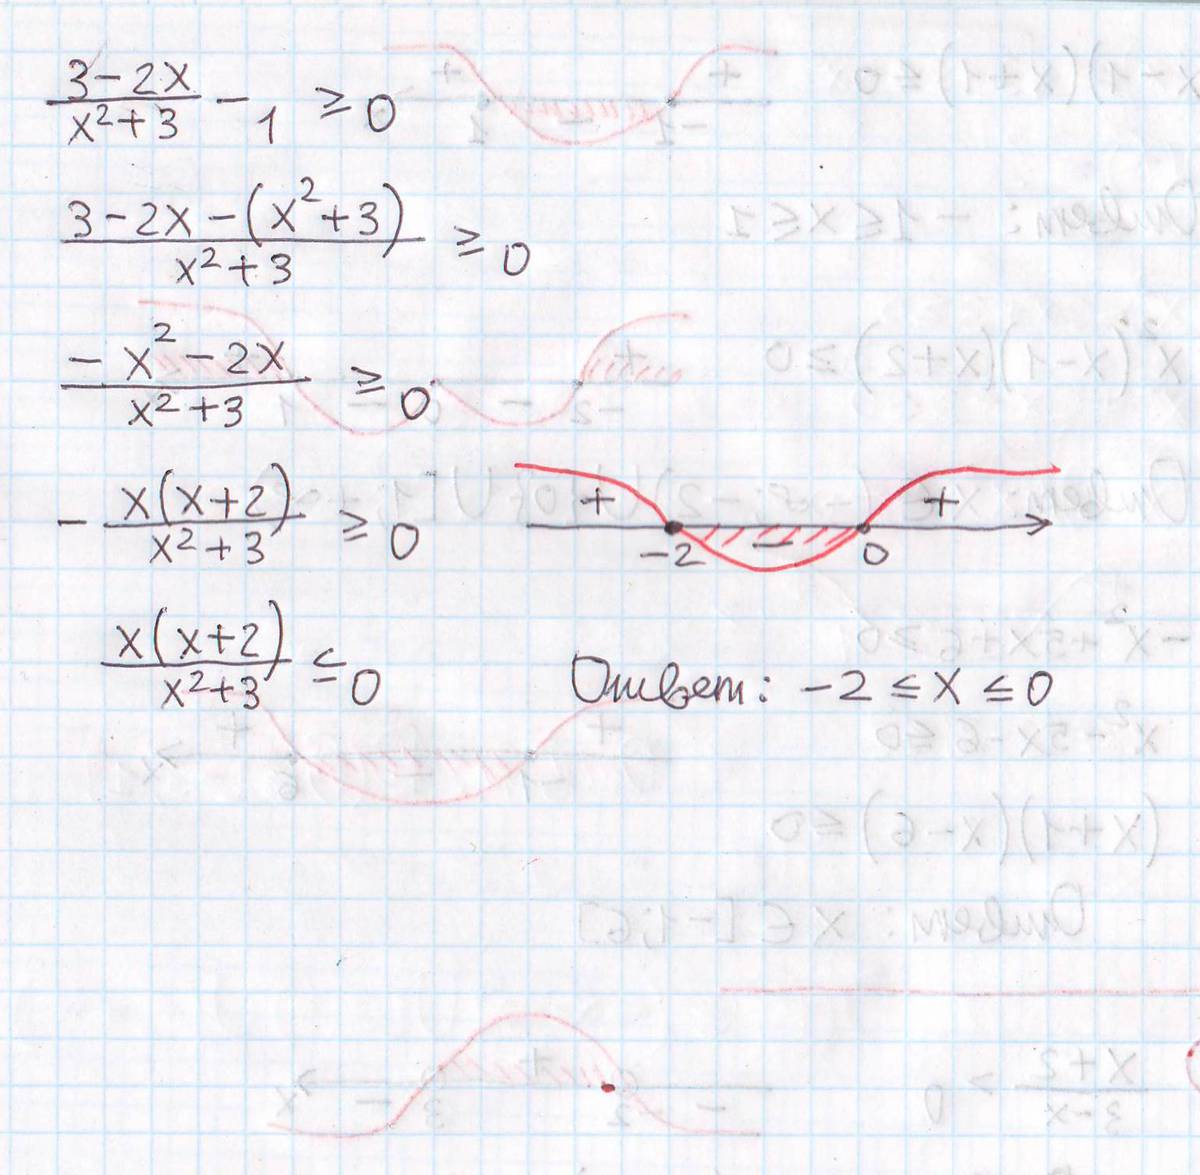 (3-2x)/(x²+3) - 1 ≥ 0
(3-2x-(x²+3))/(x²+3) ≥ 0
(-x²-2x)/(x²+3) ≥ 0
- x(x+2)/(x²+3) ≥ 0
+ - +
-2 0
x(x+2)/(x²+3) ≤ 0
Ответ: -2 ≤ x ≤ 0